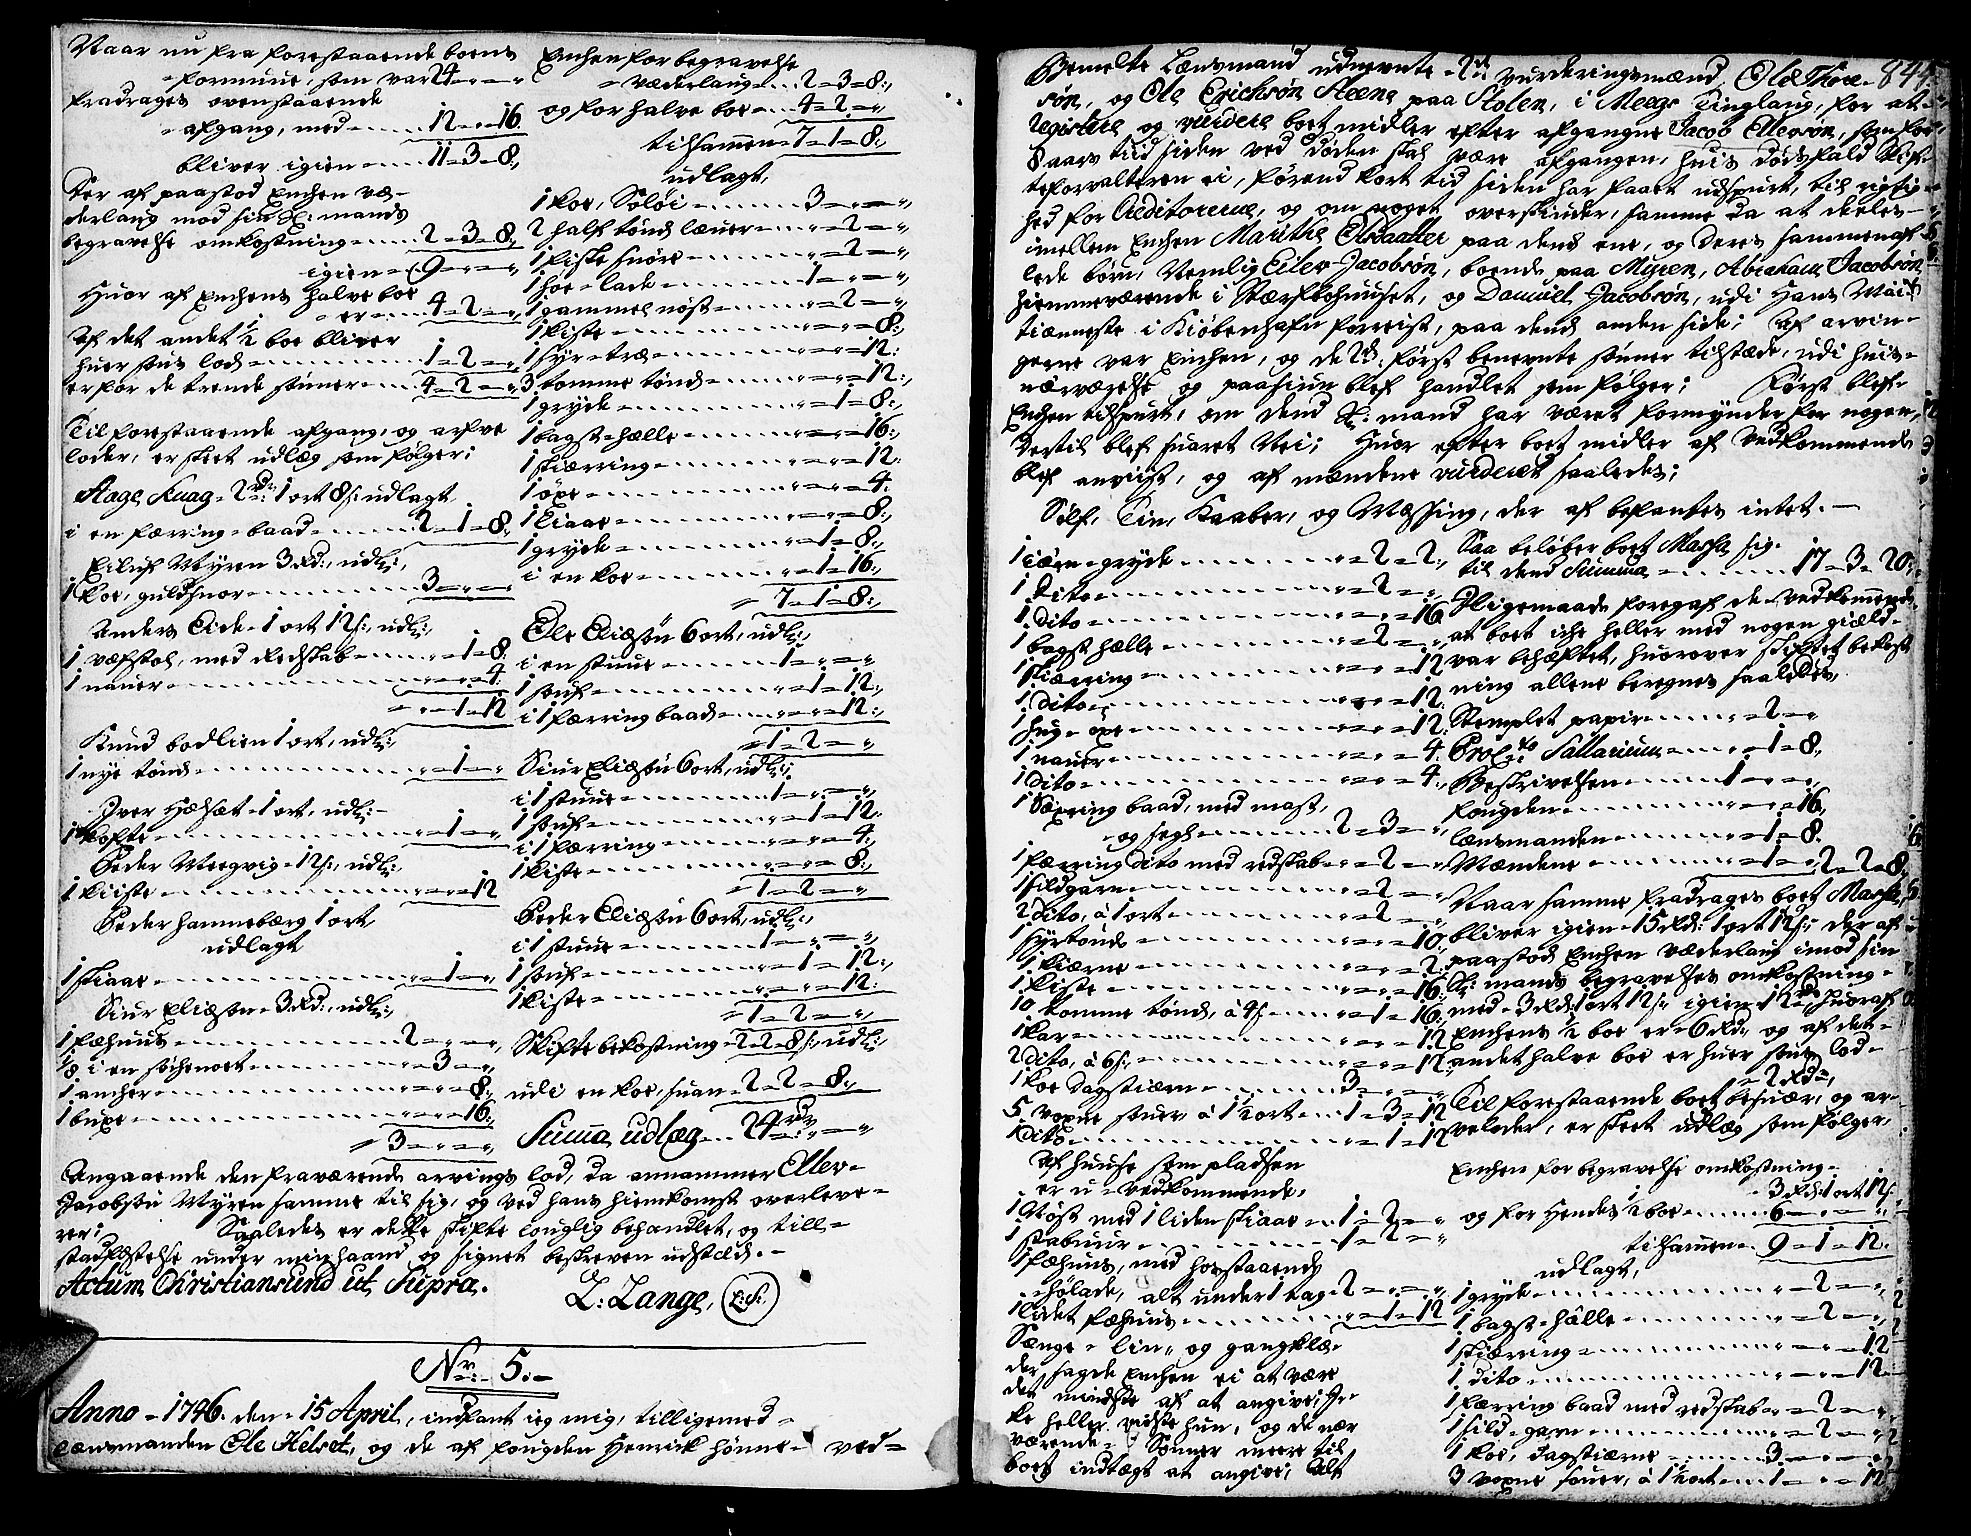 Naar nu fra forestaaende boens
formue, som var 24 - „ - „
fradrages ovenstaaende
afgang, med 12 - „ - 16
bliver igien 11 - 3 - 8,
Der af paastod Enchen ve-
derlaug mod sin S: mands
begravelse omkostning 2 - 3 - 8,
igien 9 - „ - „
Huor af Enchens halve boe
er 4 - 2 - „
Af det andet ½ boe bliver
huer søns lod 1 - 2 - „
er for de trende sønner 4 - 2 - „
Til forestaaende afgang, og arfve
loder, er skeet udlæg som følger;
Aage Kuag 2 rd 1 ort 8 s: udlagt
i en færing baad 2 - 1 - 8,
Eiluf Myren 3 Rd:, udl:,
1 koe, guldsnor 3 - „ - „
Anders Eide 1 ort 12 s:, udl:,
1 væfstol, med Redskab „ - 1 - 8
1 naver „ - „ - 4
„ - 1 - 12
Knud bodlien 1 ort, udl:,
1 nye tønde „ - 1 - „
Iver Hælsæt 1 ort, udl:
1 kofte „ - 1 - „
Peder Meegvig 12 s:, udl:,
1 kiiste „ - „ - 12
Peder hannebærg 1 ort,
udlagt
1 skiaae „ - 1 - „
Siur Eliæsøn 3 Rd:, udl:,
1 fæhuus 2 - „ - „
⅛ i en søchenoet „ - 3 - „
1 ancher „ - „ - 8,
1 buxe „ - „ - 16,
3 - „ - „
Angaaende den fraværende arvings lod, da annammer Ellev-
Jacobsøn Myren samme til sig, og ved hans hiemkomst overleve-
rer; Saaledes er dette skifte louglig behandlet, og till-
stadfæstelse under min haand og signet beskreven udstæd. -
Actum Christiansund ut Supra.
L: Lange, (L:S:)
Enchen for begravelse
væderlaug 2 - 3 - 8,
og for halve boe 4 - 2 - „
tilsamen 7 - 1 - 8,
udlagt,
1 koe, Søløi 3 - „ - „
2 half tønde læuer „ - 2 - „
1 fiske snøre „ - 2 - „
1 høe-lade 1 - „ - „
1 gammel nøst „ - 2 - „
1 kiste „ - „ - 8,
1 syre-træ „ - „ - 12,
3 tomme tønde „ - „ - 12,
1 gryde „ - 1 - 8,
1 bagst-hælle „ - „ - 16,
1 skiæring „ - „ - 12,
1 øxe „ - „ - 4,
1 Liaae „ - „ - 8,
1 gryde „ - 1 - 8,
i en koe „ - 1 - 16,
7 - 1 - 8,
Ole Eliæsøn 6 ort, udl:,
i en stuue 1 - „ - „
1 souf „ - 1 - 12,
i 1 færring baad „ - „ - 12,
1 - 2 - „
Siur Eliæsøn 6 ort, udl:,
i 1 stuue 1 - „ - „
1 souf „ - 1 - 12,
i 1 færring „ - „ - 4,
1 kiste „ - „ - 8,
1 - 2 - „
Peder Eliæsøn 6 ort, udl:,
i 1 stuue 1 - „ - „
1 souf „ - 1 - 12,
1 kiste „ - „ - 12,
1 - 2 - „
Skifte bekostning 2 - 2 - 8 s:, udl:,
udi en koe, suan 2 - 2 - 8,
Suma udlæg 24 rdr „ - „
Nr: 5.
Anno 1746. den 15 April, indfant ieg mig, tilligemed
Lænsmanden Ole Helset, og de af fougden Henrick hønne ved-
844
Bemelte Lænsmand udnevnte 2de vurderingsmænd, Ole Thore-
søn, og Ole Erichsøn Steene paa Stolen, i Meegs Tinglaug, for at
Registere og vurdere boet midler efter afgangne Jacob Ellevsøn, som for
8 aars tiid siden ved døden skal være afgangen, huis dødsfald Skif-
teforvalteren ei, førend kort tid siden har faaet udspurt, til rigtig-
hed for Creditorerne, og om noget overskiuder, samme da at deeles
imellem Enchen Marithe Olsdatter paa dend ene, og deres sammenaf-
lede børn, Nemlig Eilev Jacobsøn, boende paa Myren, Abraham Jacobsøn
hiemmeværende i Stærfbohuuset, og Daniel Jacobsøn, udi Hans Mai:ts
tieneste i Kiøbenhafn forreist, paa dend anden side; Af arvin-
gerne var Enchen, og de 2de: først benevnte sønner tilstæde, udi huis
nærværelse og paasiun blef handlet som følger; Først blef
Enchen tilspurt, om dend S: mand har været formynder for nogen,
dertil blef suaret Nei; Huor efter boet midler af vedkommende
blef anviist, og af mændene vurderet saaledes;
Sølf, Tin, Kaaber, og Messing, der af befantes intet. -
1 iærn-gryde „ - 2 - 2,
1 Dito „ - 2 - „
1 dito „ - „ - 16
1 bagst hælle „ - 2 - „
1 skiæring „ - „ - 12
1 dito „ - „ - 12
1 hug-øxe „ - „ - 12
1 naver „ - „ - 4
1 dito „ - „ - 4
1 Sexring baad, med mast,
og segl 2 - 3 - „
1 færring dito med redskab „ - 2 - „
1 sildgarn „ - 2 - „
2 dito, à 1 ort „ - 2 - „
1 syrtønde „ - „ - 10
1 kiærne „ - „ - 2
1 kiste „ - „ - 16
10 tomme tønde, à 4 s. „ - 1 - 16
1 kar „ - „ - 12
2 dito, à 6 s. „ - „ - 12
1 koe Dagstiærne 3 - „ - „
5 voxne souer, à 1½ ort 1 - 3 - 12
1 dito „ - 1 - 12
Af huuse som pladsen
er u-vedkommende,
1 Nøst med 1 liden skiaae 1 - 2 - „
1 stabuur 1 - 2 - „
1 fæhuus, med hosstaaende
hølade, alt under 1 tag 2 - „ - „
1 lidet fæhuus „ - 1 - 12
Sænge-lin- og gangklæ-
der sagde Enchen ei at være
det mindste af at angive; Ik-
ke heller vidste hun, og de nær
værende Sønner meere til
boets indtægt at angive, Alt
Saa beløber boet Massa sig
til dend Summa 17 - 3 - 20,
Iligemaade foregaf de vedkommende,
at boet icke heller med nogen gield
var behæftet, huorover skiftet bekost
ning allene beregnes saaledes,
Stemplet papir „ - 2 - „
Prof:to Sallarium „ - 1 - 8,
Beskrivelsen 1 - „ - „
fougden „ - „ - 16,
lænsmanden „ - 1 - 8.
Mændene „ - 1 - „ 2 - 2 - 8,
Naar samme fradrages boet Massa,
bliver igien 15 Rd: 1 ort 12 s: der af
paastod Enchen væderlaug imod sin
S: mands begravelses omkostning
med 3 Rd: 1 ort 12 s: igien 12 rd, huoraf
Enchens ½ boe er 6 Rd:, og af det
andet halve boe er huer søns lod
2 Rd:,
Til forestaaende boet besuær, og ar-
veloder, er skeet udlæg som følger,
Enchen for begravelse omkostning
3 Rd: 1 ort 12 s:
og for Hendes ½ boe 6 - „ - „
tilsamen 9 - 1 - 12,
udlagt,
1 gryde „ - 2 - „
1 bagst-hælle „ - 2 - „
1 skiæring „ - „ - 12
1 dito „ - „ - 12
1 færring baad med redskab „ - 2 - „
1 sild-garn „ - 2 - „
1 koe, dagstiærne 3 - „ - „
3 voxne souer, à 1½ ort 1 - „ - 12